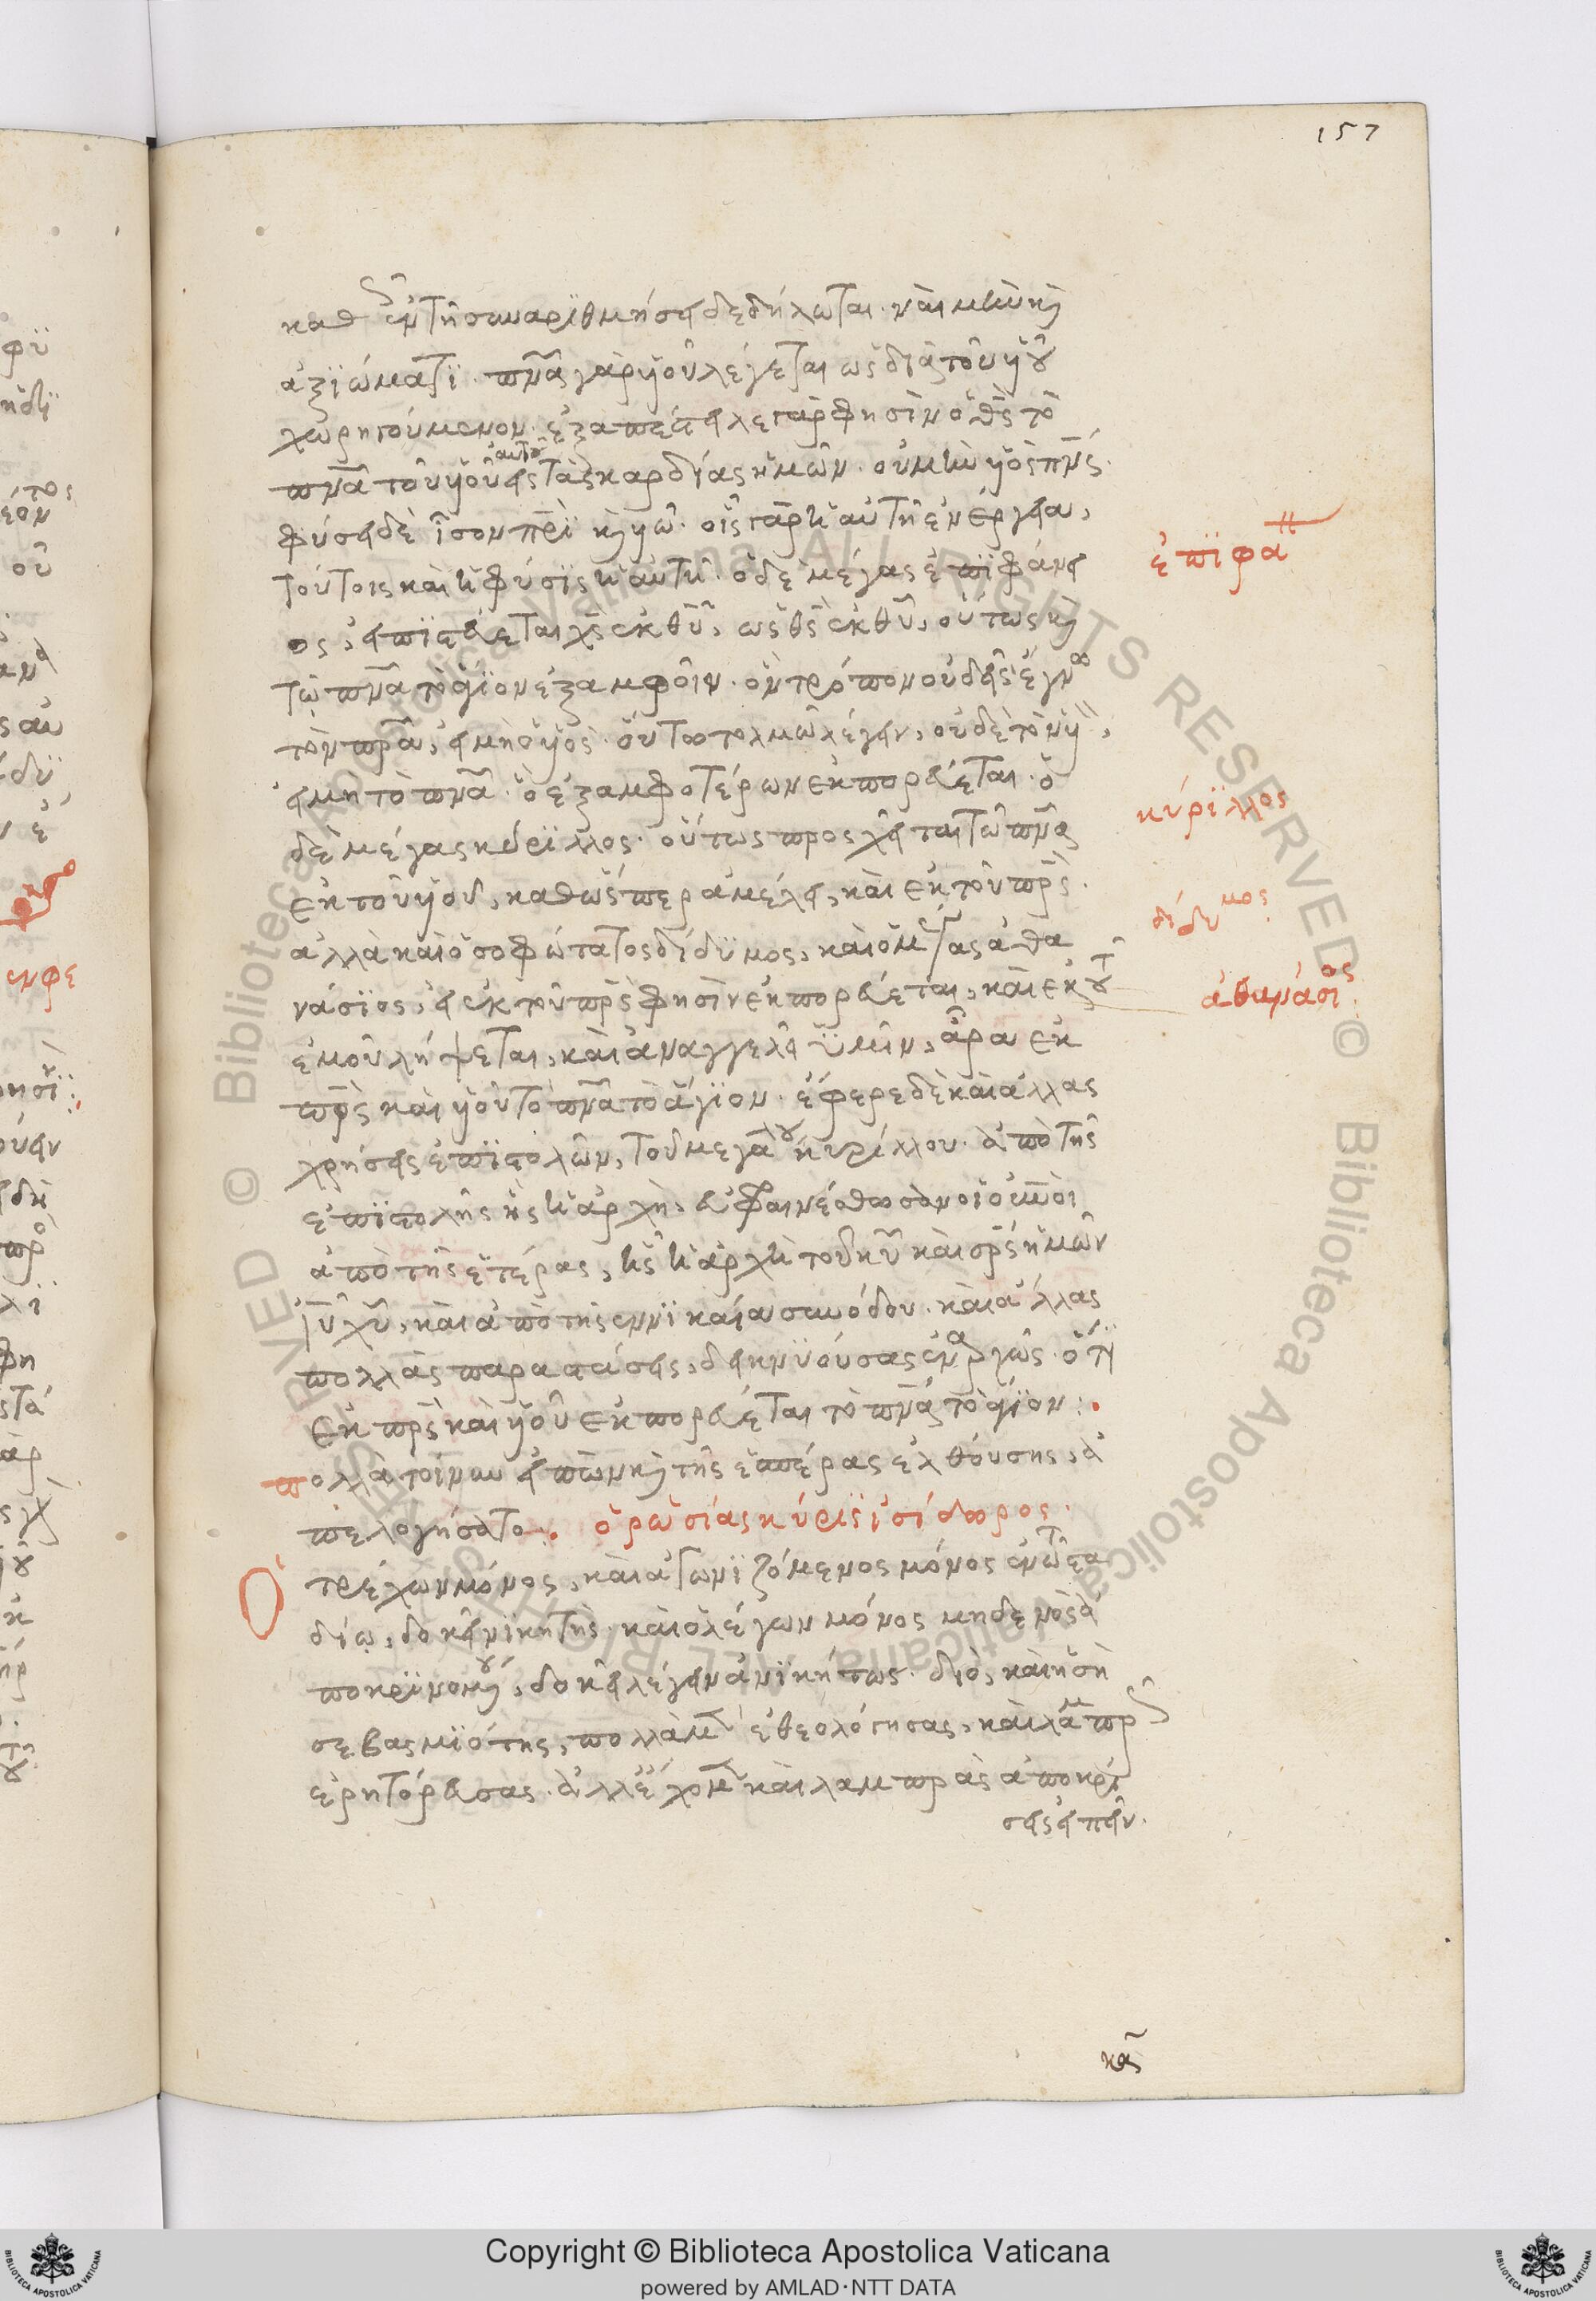 157
καθ ἐν τῆ συναριθμήσει δεδήλωται· ναὶ μὴν κὶ
ἀξιώματι· πνα γὰρ υἱοῦ λέγεται ὡς διὰ τοῦ υἱοῦ
χωρηγούμενον· ἐξαπέστειλε γάρ φησιν ὁ θς τὸ
πνα τοῦ υἱοῦ αὐτοῦ εἰς τὰς καρδίας ἡμῶν· οὐ μὴν υἱὸς πνς·
φύσει δὲ ἴσον πρὶ κὶ υἱῶ· οἷς γὰρ ἡ αὐτὴ ἐνέργεια,
τούτοις καὶ ἡ φύσις ἡ αὐτή· ὁ δὲ μέγας ἐπιφάνει
ος, εἰ πιστεύεται χς ἐκ θῦ, ὡς θς ἐκ θῦ, οὕτως κὶ
τῶ πνα τὸ ἅγιον ἐξ ἀμφοῖν· ὃν τρόπον οὐδεὶς ἔγνω
τὸν πρα, εἰ μὴ ὁ υἱός· οὕτω τολμῶ λέγειν, οὐδὲ τὸν υἱ,
εἰ μὴ τὸ πνα· ὃ ἐξ ἀμφοτέρων ἐκπορεύεται· ὁ
δὲ μέγας κύριλλος· οὕτως προσχεῖται τῶ πνα
ἐκ τοῦ υἱοῦ, καθὼς περ ἀμέλει, καὶ ἐκ τοῦ πρς·
ἀλλὰ καὶ ὁ σοφώτατος δίδυμος, καὶ ὁ μέγας ἀθα
νάσιος, εἰ ἐκ τοῦ πρς φησὶν ἐκπορεύεται, καὶ ἐκ τοῦ
ἐμοῦ λήψεται, καὶ ἀναγγελεῖ ὑμῖν, ἄρα ἐκ
πρς καὶ υἱοῦ τὸ πνα τὸ ἅγιον· ἔφερε δὲ καὶ ἄλλας
χρήσεις ἐπιστολῶν, τοῦ μεγάλου κυρίλλου· ἀπὸ τῆς
ἐπιστολῆς ἧς ἡ ἀρχὴ, εὐφραινέσθωσαν οἱ οὐνοὶ
ἀπὸ τῆς ἑτέρας, ἧς ἡ ἀρχὴ τοῦ κυ καὶ σρς ἡμῶν
ἰῦ χῦ, καὶ ἀπὸ τῆς ἐν νικαία συνόδου· καὶ ἄλλας
πολλὰς παραστάσεις, δεικνυούσας ἐναργῶς· ὅτι
ἐκ πρς καὶ υἱοῦ ἐκπορεύεται τὸ πνα τὸ ἅγιον:·
πολλὰ τοίνυν εἰπὼν κὶ τῆς ἑσπέρας ἐλθούσης, ἀ
πελογήσατο:· ὁ ρωσίας κύρις ἰσίδωρος·
Ὁ τρέχων μόνος, καὶ ἀγωνιζόμενος μόνος ἐν τῶ στα
δίω, δοκεῖ νικητής· καὶ ὁ λέγων μόνος μηδενὸς ἀ
ποκρινομένου, δοκεῖ λέγειν ἀνικήτως· διὸ, καὶ ἡ σὴ
σεβασμιότης, πολλὰ μὲν ἐθεολόγησας, καὶ λαμπρ
ἐρητόρευσας· ἀλλ ἔχομεν καὶ λαμπρὰς ἀποκρί
σεις εἰπεῖν·
ἐπιφα
κύριλλος
δίδυμος
ἀθανάσιος
Copyright © Biblioteca Apostolica Vaticana
powered by AMLAD·NTT DATA